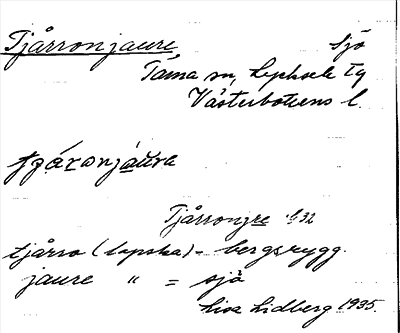 Tjårronjaure, sjö
Tärna sn, Lycksele tg
Västerbottens l.
tjårronjaure
Tjårronjre 1932
tjårro (lapska) = bergsrygg.
jaure " = sjö
Lisa Lidberg 1935.